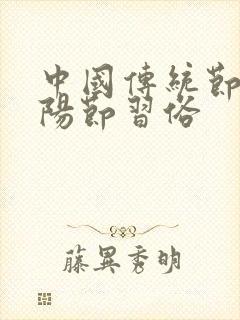 中國傳統節
陽節習俗
藤異秀明